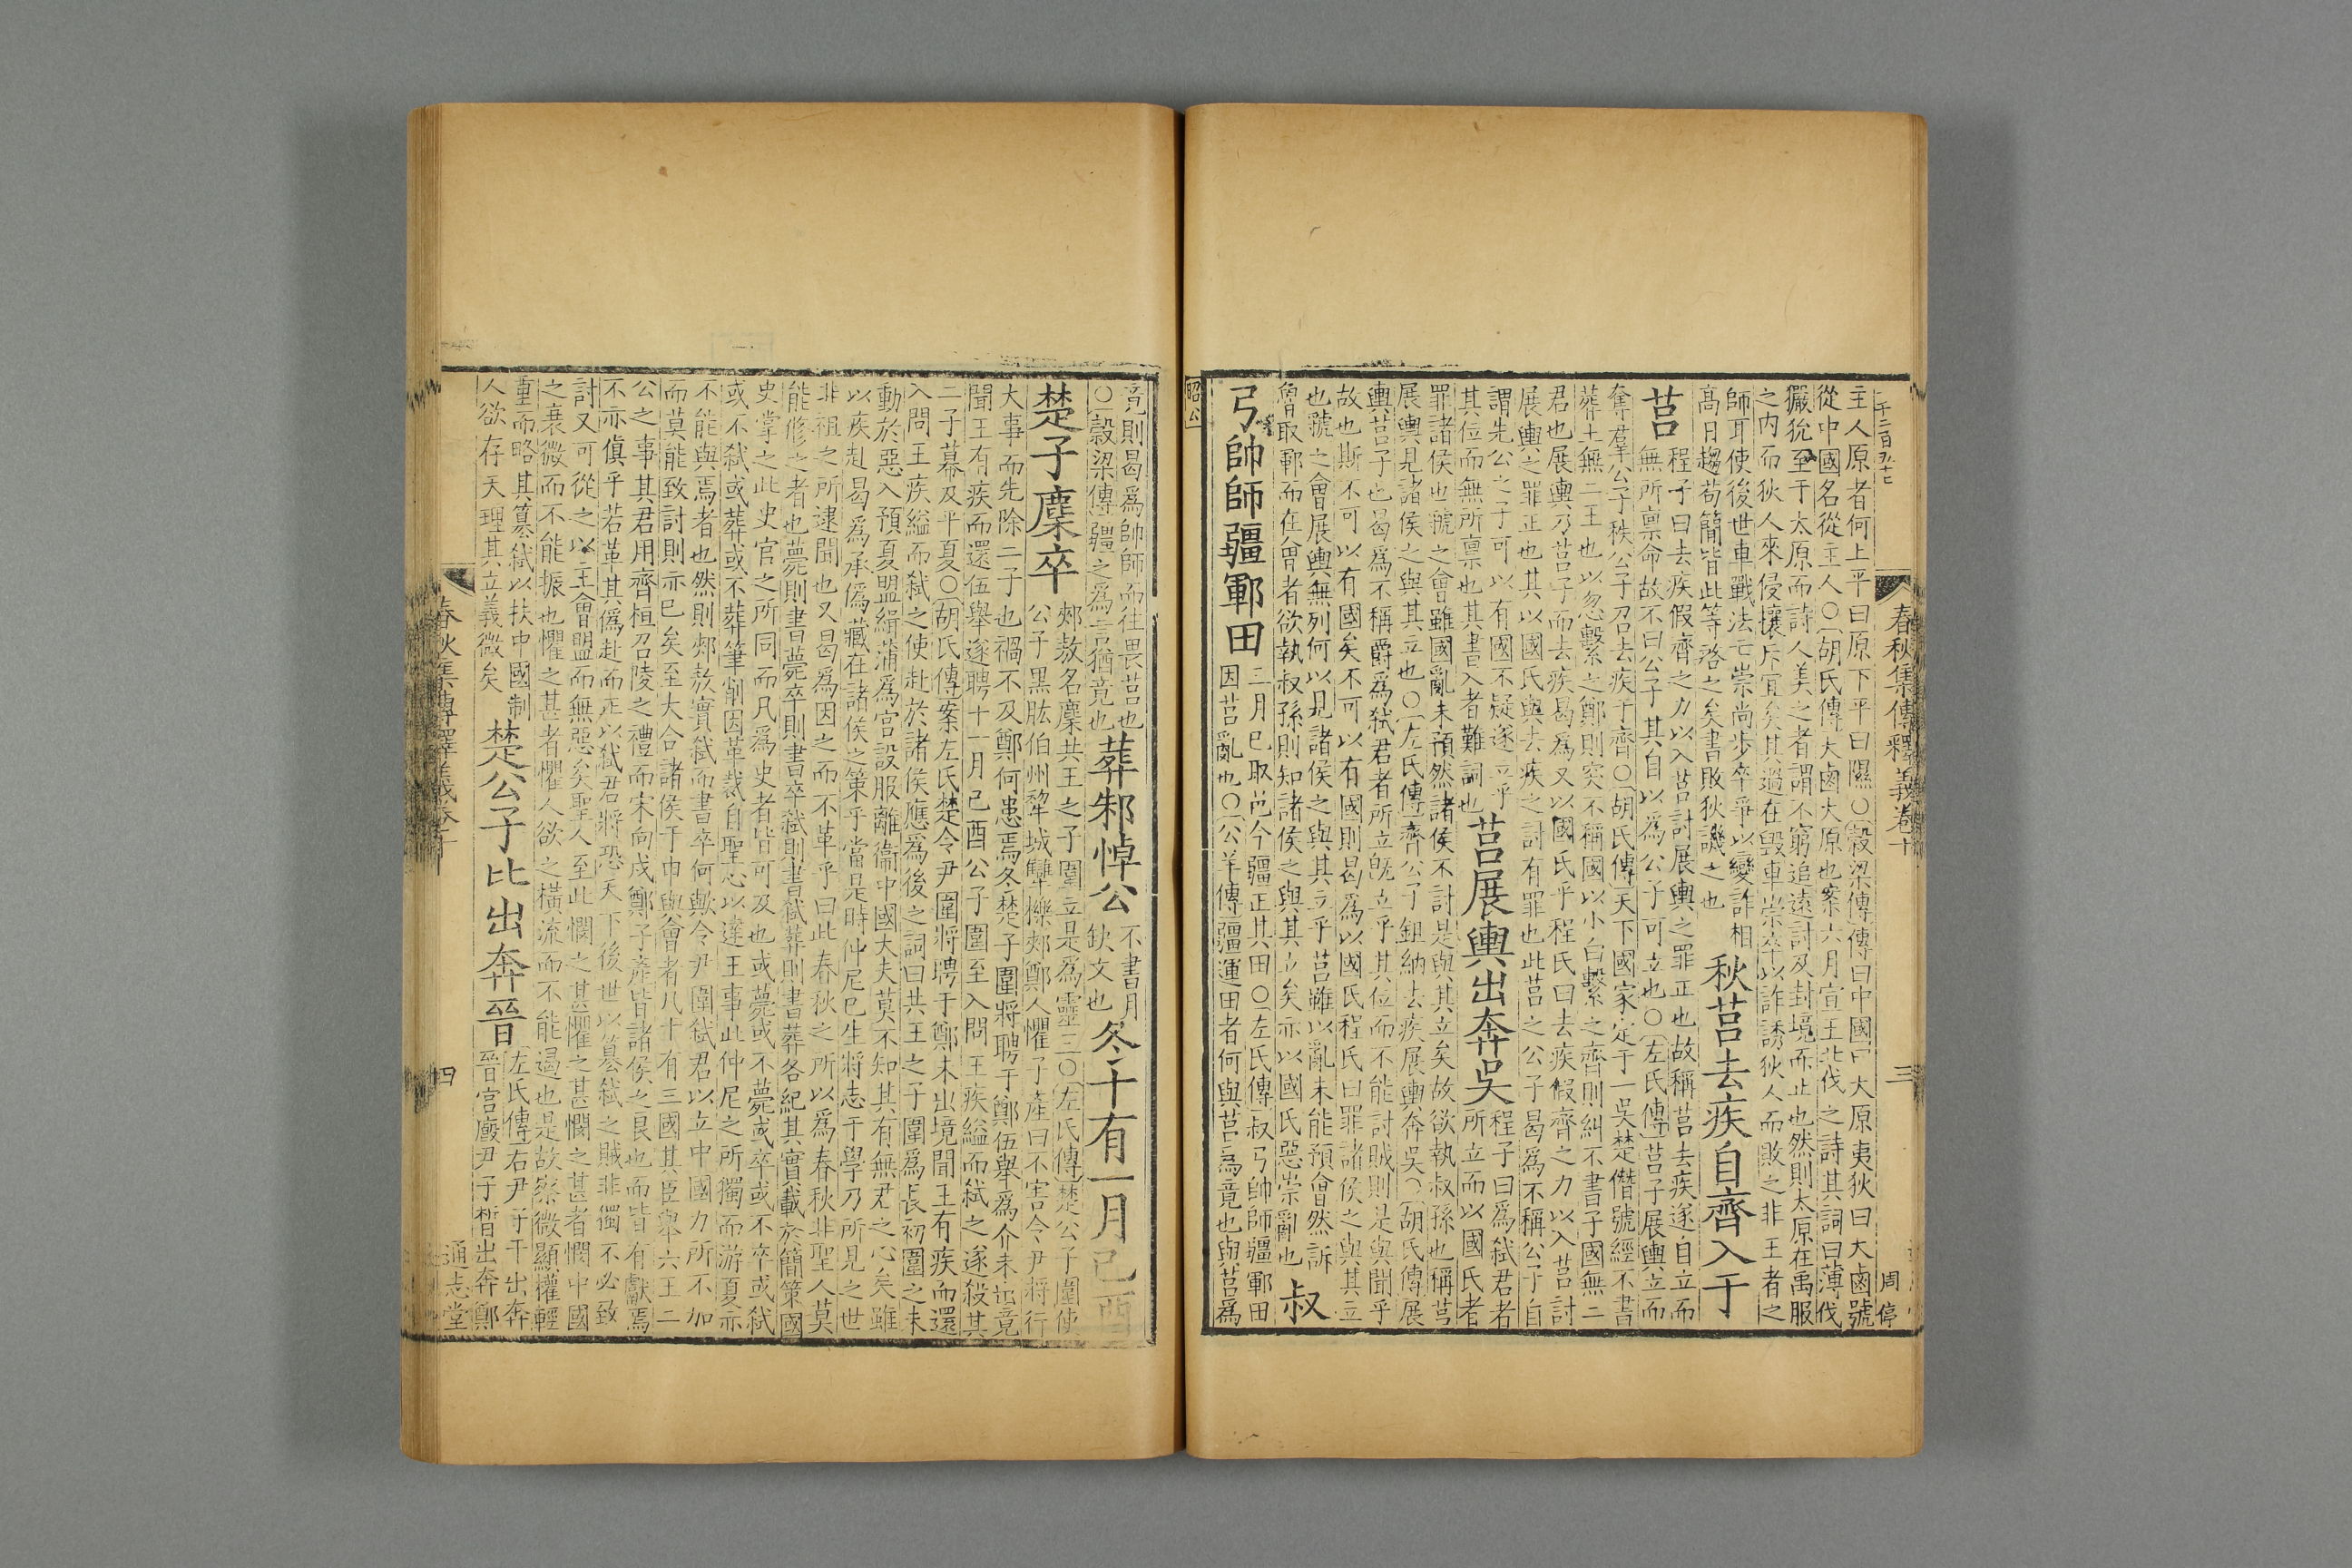 春秋集傳釋義卷十
三
周停
主人原者何上平曰原下平曰隰○穀梁傳傳曰中國曰大原夷狄曰大鹵號
從中國名從主人○胡氏傳大鹵大原也案六月宣王北伐之詩其詞曰薄伐
玁狁至于太原而詩人美之者謂不窮追遠討及封境而止也然則太原在禹服
之內而狄人來侵攘斥宜矣其過在毀車崇卒以詐誘狄人而敗之非王者之
師耳使後世車戰法亡崇尚步卒爭以變詐相
高日趨苟簡皆此等啓之矣書敗狄譏之也
秋莒去疾自齊入于
莒
程子曰去疾假齊之力以入莒討展輿之罪正也故稱莒去疾遂自立而
無所稟命故不曰公子其自以為公子可立也○左氏傳莒子展輿立而
奪羣公子秩公子召去疾于齊○胡氏傳天下國家定于一吳楚僭號經不書
葬土無二王也以忽繫之鄭則突不稱國以小白繫之齊則糾不書子國無二
君也展輿乃莒子而去疾曷為又以國氏乎程氏曰去疾假齊之力以入莒討
展輿之罪正也其以國氏與去疾之討有罪也此莒之公子曷為不稱公子自
謂先公之子可以有國不疑遂立乎
其位而無所稟也其書入者難詞也
莒展輿出奔吳
程子曰為弒君者
所立而以國氏者
罪諸侯也虢之會雖國亂未預然諸侯不討是與其立矣故欲執叔孫也稱莒
展輿見諸侯之與其立也○左氏傳齊公子鉏納去疾展輿奔吳○胡氏傳展
輿莒子也曷為不稱爵為弒君者所立旣立乎其位而不能討賊則是與聞乎
故也斯不可以有國矣不可以有國則曷為以國氏程氏曰罪諸侯之與其立
也虢之會展輿無列何以見諸侯之與其立乎莒雖以亂未能預會然訴
魯取鄆而在會者欲執叔孫則知諸侯之與其立矣亦以國氏惡崇亂也
叔
弓帥師疆鄆田
三月巳取邑今疆正其田○左氏傳叔弓帥師疆鄆田
因莒亂也○公羊傳疆運田者何與莒為竟也與莒為
昭公
竟則曷為帥師而往畏莒也
○穀梁傳疆之為言猶竟也
葬邾悼公
不書月
缺文也
冬十有一月己酉
楚子麇卒
郟敖名麇共王之子圍立是為靈王○左氏傳楚公子圍使
公子黑肱伯州犂城犫櫟郟鄭人懼子產曰不害令尹將行
大事而先除二子也禍不及鄭何患焉冬楚子圍將聘于鄭伍舉為介未出竟
聞王有疾而還伍舉遂聘十一月己酉公子圍至入問王疾縊而弒之遂殺其
二子幕及平夏○胡氏傳案左氏楚令尹圍將聘于鄭未出境聞王有疾而還
入問王疾縊而弒之使赴於諸侯應為後之詞曰共王之子圍為長初圍之未
動於惡入預夏盟緝蒲為宮設服離衛中國大夫莫不知其有無君之心矣雖
以疾赴曷為承偽藏在諸侯之策乎當是時仲尼巳生將志于學乃所見之世
非祖之所逮聞也又曷為因之而不革乎曰此春秋之所以為春秋非聖人莫
能修之者也薨則書薨卒則書卒弒則書弒葬則書葬各紀其實載於簡策國
史掌之此史官之所同而凡為史者皆可及也或薨或不薨或卒或不卒或弒
或不弒或葬或不葬筆削因革裁自聖心以達王事此仲尼之所獨而游夏亦
不能與焉者也然則郟敖實弒而書卒何歟令尹圍弒君以立中國力所不加
而莫能致討則亦巳矣至大合諸侯于申與會者凡十有三國其臣舉六王二
公之事其君用齊桓召陵之禮而宋向戌鄭子產皆諸侯之良也而皆有獻焉
不亦傎乎若革其偽赴而正以弒君將恐天下後世以篡弒之賊非獨不必致
討又可從之以主會盟而無惡矣聖人至此憫之甚懼之甚憫之甚者憫中國
之衰微而不能振也懼之甚者懼人欲之橫流而不能遏也是故察微顯權輕
重而略其篡弒以扶中國制
人欲存天理其立義微矣
楚公子比出奔晉
左氏傳右尹子干出奔
晉宮廄尹子皙出奔鄭
春秋集傳釋義卷十
四
通志堂